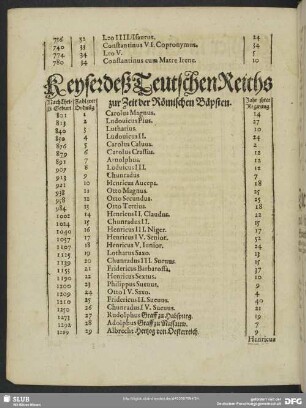 716 32 Leo IIII. Isaurus. 24
740 33 Constantinus VI. Copronymus. 34
774 34 Leo V. 5
780 34 Constantinus cum Matre Irene. 10
Keyser deß Teutschen Reichs
zur Zeit der Römischen Bäpsten.
801 1 Carolus Magnus. 14
815 2 Ludouicus Pius. 27
840 3 Lotharius 10
4 Ludouicus II. 24
876 5 Carolus Caluus. 2
879 6 Carolus Crassus. 12
891 7 Arnolphus. 12
8 Luduicus III. 12
913 9 Chunradus 7
921 10 Henricus Auceps. 18
938 11 Otto Magnus. 
12 Otto Secundus. 
984 13 Otto Tertius. 18
1002 14 Henricus II. Claudus. 22
1024 15 Chunradus II. 15
1040 16 Henricus III. Niger. 17
1057 17 Henricus IV. Senior. 52
1107 18 Henricus V. Iunior. 24
1125 19 Lotharus Saxo. 13
1139 20 Chunradus III. Sueuus. 15
1155 21 Fridericus Barbarossa. 37
1190 22 Henricus Sextus. 10
23 Philippus Sueuus. 9
1209 24 Otto IV. Saxo. 4
1210 25 Fridericus II. Sueuus. 40
1250 26 Chunradus IV. Sueuus. 21
1273 27 Rudolphus Graff zu Habspurg. 19
1292 28 Adolphus Graff zu Nassaw. 7
1299 29 Albrecht Hertzog von Oesterreich. 9
Henricus
SLUB